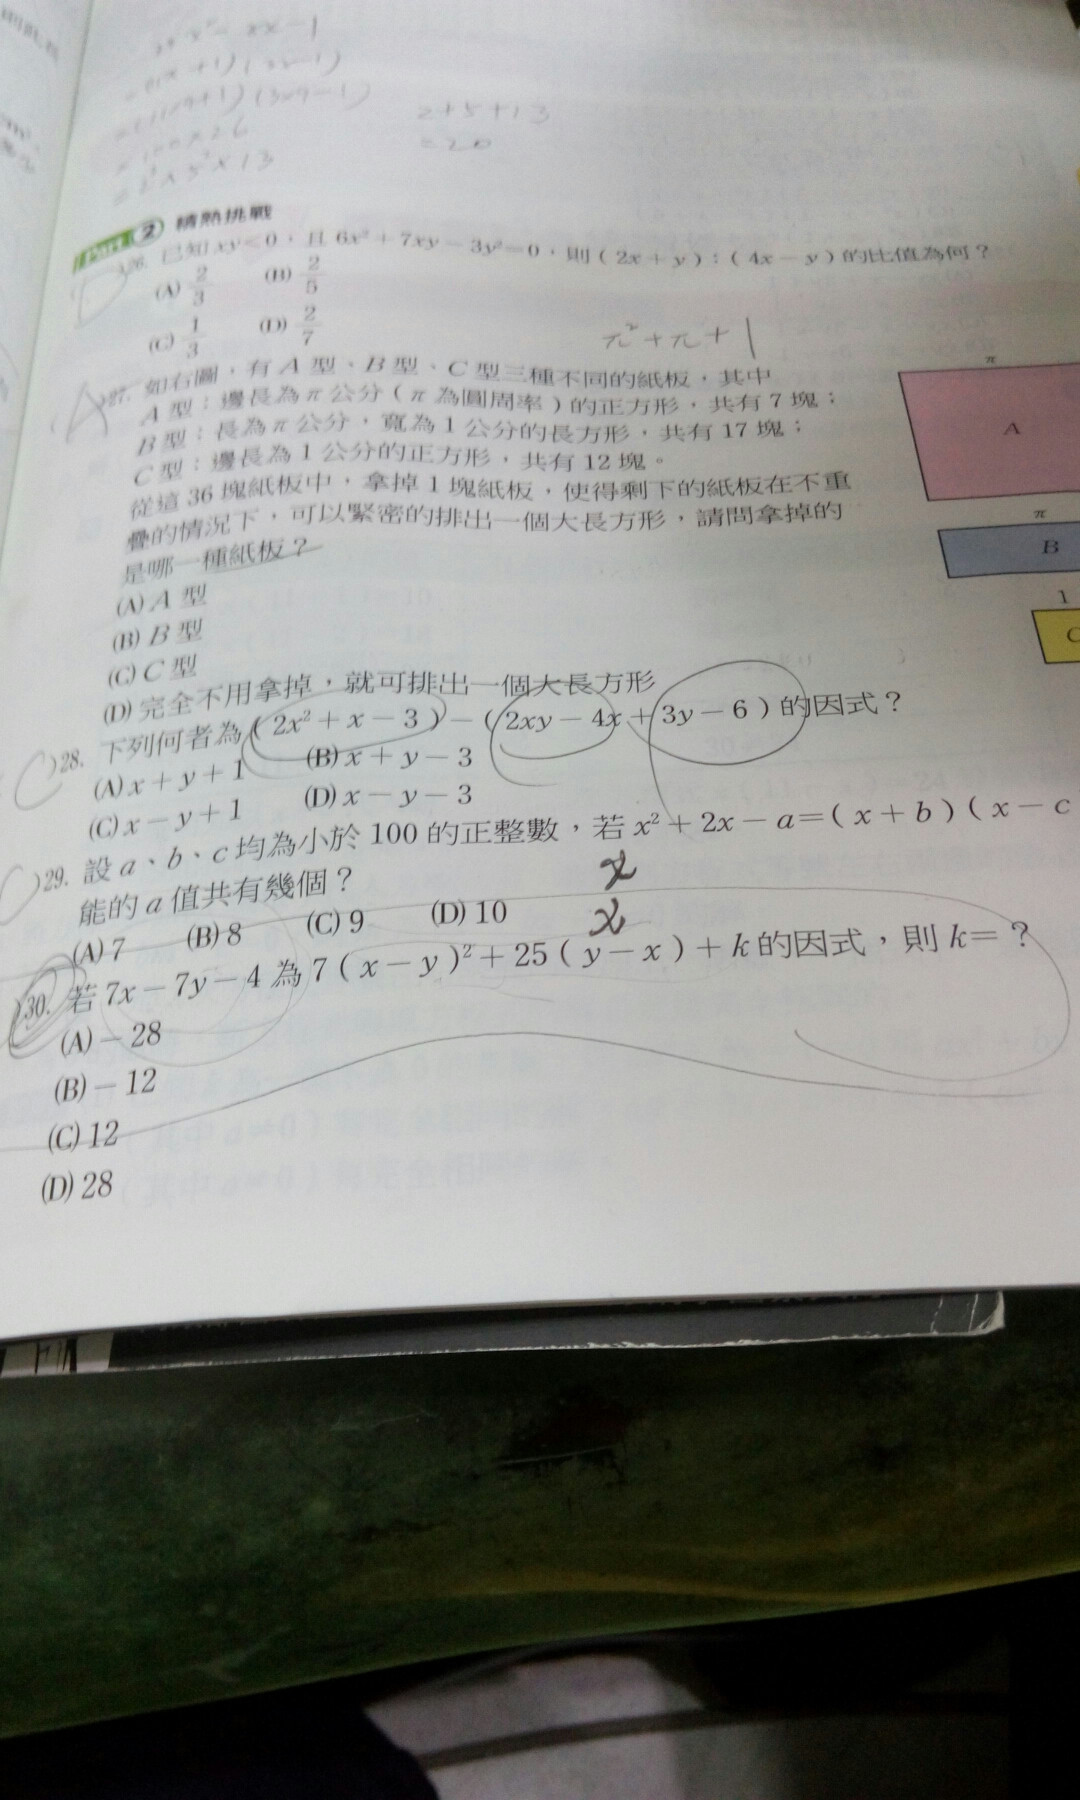 2+5+13
=20
Part 2 精熟挑戰
26. 已知 xy<0，且 6x²+7xy-3y²=0，則（2x+y）：（4x-y）的比值為何？
(A) 2/3 (B) 2/5
(C) 1/3 (D) 2/7
π²+π+1
A 27. 如右圖，有 A 型、B 型、C 型三種不同的紙板，其中
A 型：邊長為 π 公分（π 為圓周率）的正方形，共有 7 塊；
B 型：長為 π 公分，寬為 1 公分的長方形，共有 17 塊；
C 型：邊長為 1 公分的正方形，共有 12 塊。
從這 36 塊紙板中，拿掉 1 塊紙板，使得剩下的紙板在不重
疊的情況下，可以緊密的排出一個大長方形，請問拿掉的
是哪一種紙板？
(A) A 型
(B) B 型
(C) C 型
(D) 完全不用拿掉，就可排出一個大長方形
π
A
π
B
1
C
C 28. 下列何者為（2x²+x-3）-（2xy-4x+3y-6）的因式？
(A) x+y+1 (B) x+y-3
(C) x-y+1 (D) x-y-3
C 29. 設 a、b、c 均為小於 100 的正整數，若 x²+2x-a=（x+b）（x-c
能的 a 值共有幾個？
(A) 7 (B) 8 (C) 9 (D) 10
x
x
30. 若 7x-7y-4 為 7（x-y）²+25（y-x）+k 的因式，則 k=？
(A) -28
(B) -12
(C) 12
(D) 28